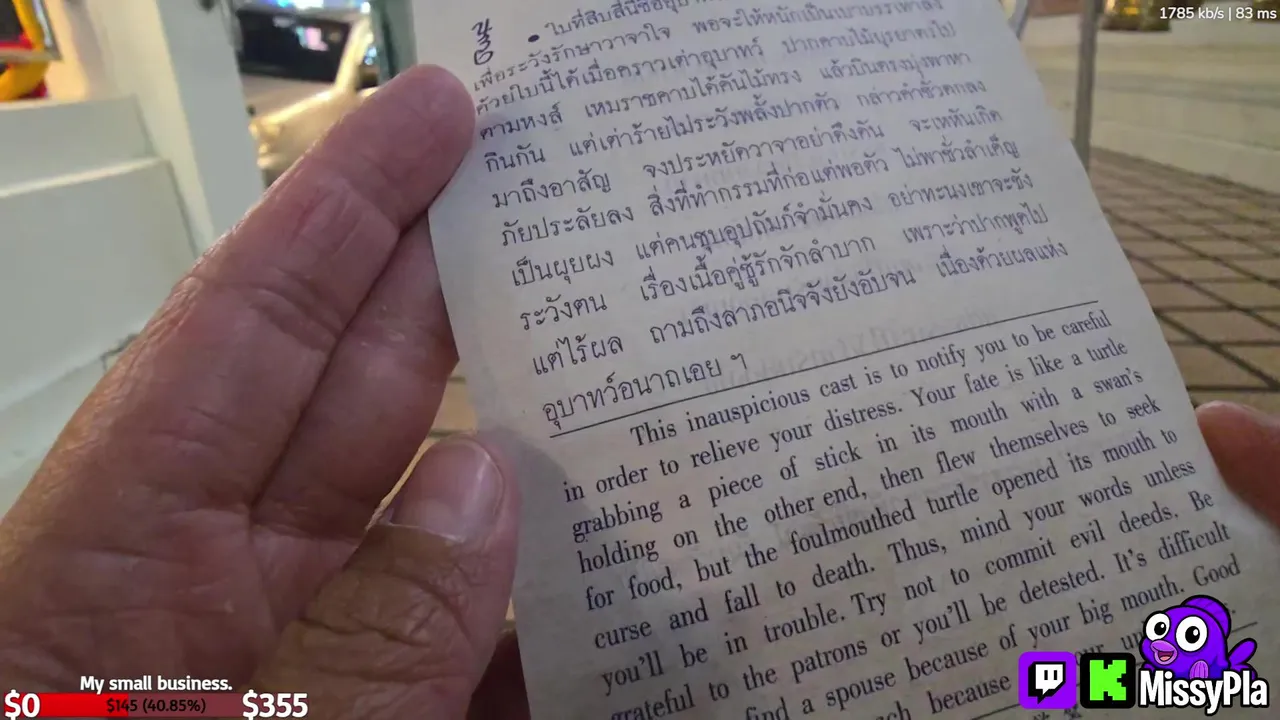 1785 kb/s | 83 ms
ใบที่สิบสี่นี้ชื่ออุบา
เพื่อระวังรักษาวาจาใจ พอจะให้หนักเป็นเบาบรรเทาลง
ด้วยใบนี้ได้เมื่อคราวเต่าอุบาทว์ ปากคาบไม้
ตามหงส์ เหมราชคาบได้คันไม้ทรง แล้วบินตรงมุ่งพาหา
กินกัน แต่เต่าร้ายไม่ระวังพลั้งปากตัว กล่าวคำชั่วตกลง
มาถึงอาสัญ จงประหยัดวาจาอย่าดึงดัน จะเหหันเกิด
ภัยประลัยลง สิ่งที่ทำกรรมที่ก่อแต่พอตัว ไม่พาชั่วลำเค็ญ
เป็นผุยผง แต่คนชุบอุปถัมภ์จำมั่นคง อย่าทะนงเขาจะชัง
ระวังตน เรื่องเนื้อคู่ชู้รักจักลำบาก เพราะว่าปากพูดไป
แต่ไร้ผล ถามถึงลาภอนิจจังยังอับจน เนื่องด้วยผลแห่ง
อุบาทว์อนาถเอย ฯ
This inauspicious cast is to notify you to be careful
in order to relieve your distress. Your fate is like a turtle
grabbing a piece of stick in its mouth with a swan's
holding on the other end, then flew themselves to seek
for food, but the foulmouthed turtle opened its mouth to
curse and fall to death. Thus, mind your words unless
you'll be in trouble. Try not to commit evil deeds. Be
grateful to the patrons or you'll be detested. It's difficult
find a spouse because of your big mouth. Good
because
My small business.
$0
$145 (40.85%)
$355
MissyPla